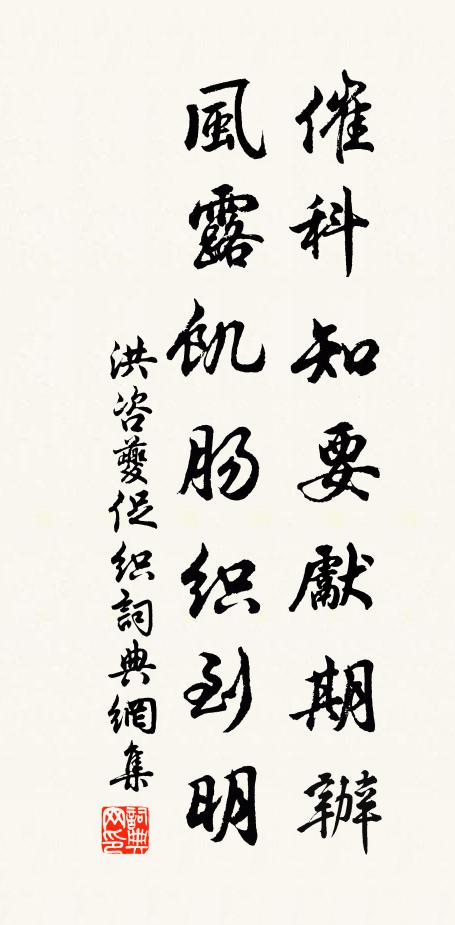 催科知要獻期辦
風露飢肠织到明
洪咨夔促织詞典網集
詞典网印